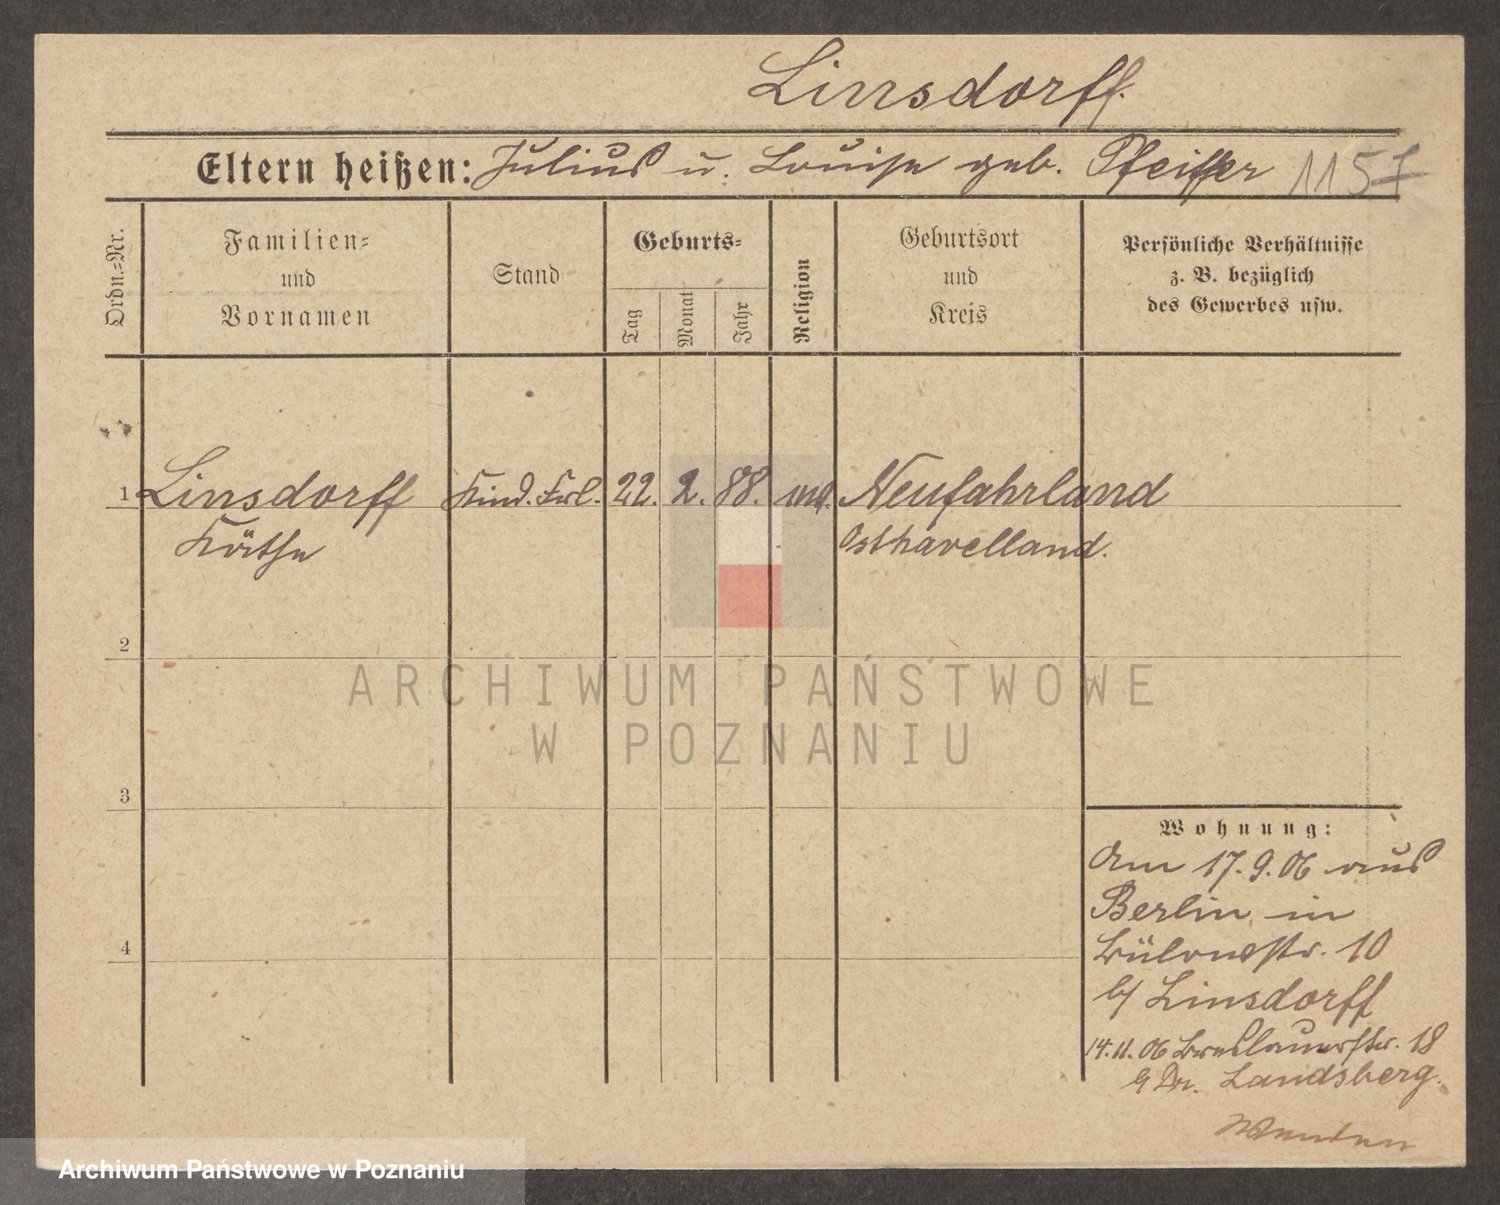 Linsdorff.
Eltern heißen: Julius u. Louise geb. Pfeiffer 1157
Ordn.-Nr.
Familien-
und
Vornamen
Stand
Geburts-
Tag
Monat
Jahr
Religion
Geburtsort
und
Kreis
Persönliche Verhältnisse
z. B. bezüglich
des Gewerbes usw.
1 Linsdorff Kind. Frl. 22. 2. 88. Neufahrland
Käthe Osthavelland.
2
3
4
Wohnung:
Am 17.9.06 aus
Berlin in
Bülowstr. 10
b/ Linsdorff
14.11.06 Breslauerstr. 18
Dr. Landsberg.
ARCHIWUM PAŃSTWOWE
W POZNANIU
Archiwum Państwowe w Poznaniu